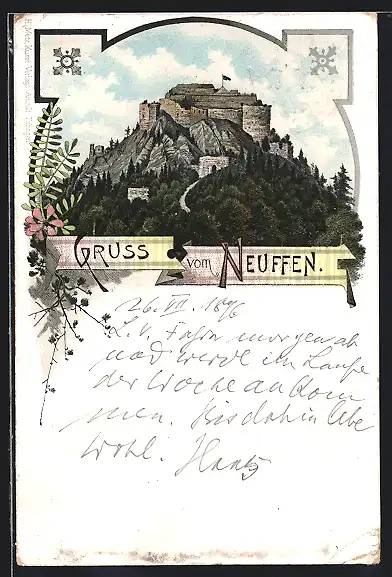 GRUSS VOM NEUFFEN.
26. VII. 1896
L. V. Fahre morgen ab
und werde im Laufe
der Woche ankom
men. Bis dahin lebe
wohl.